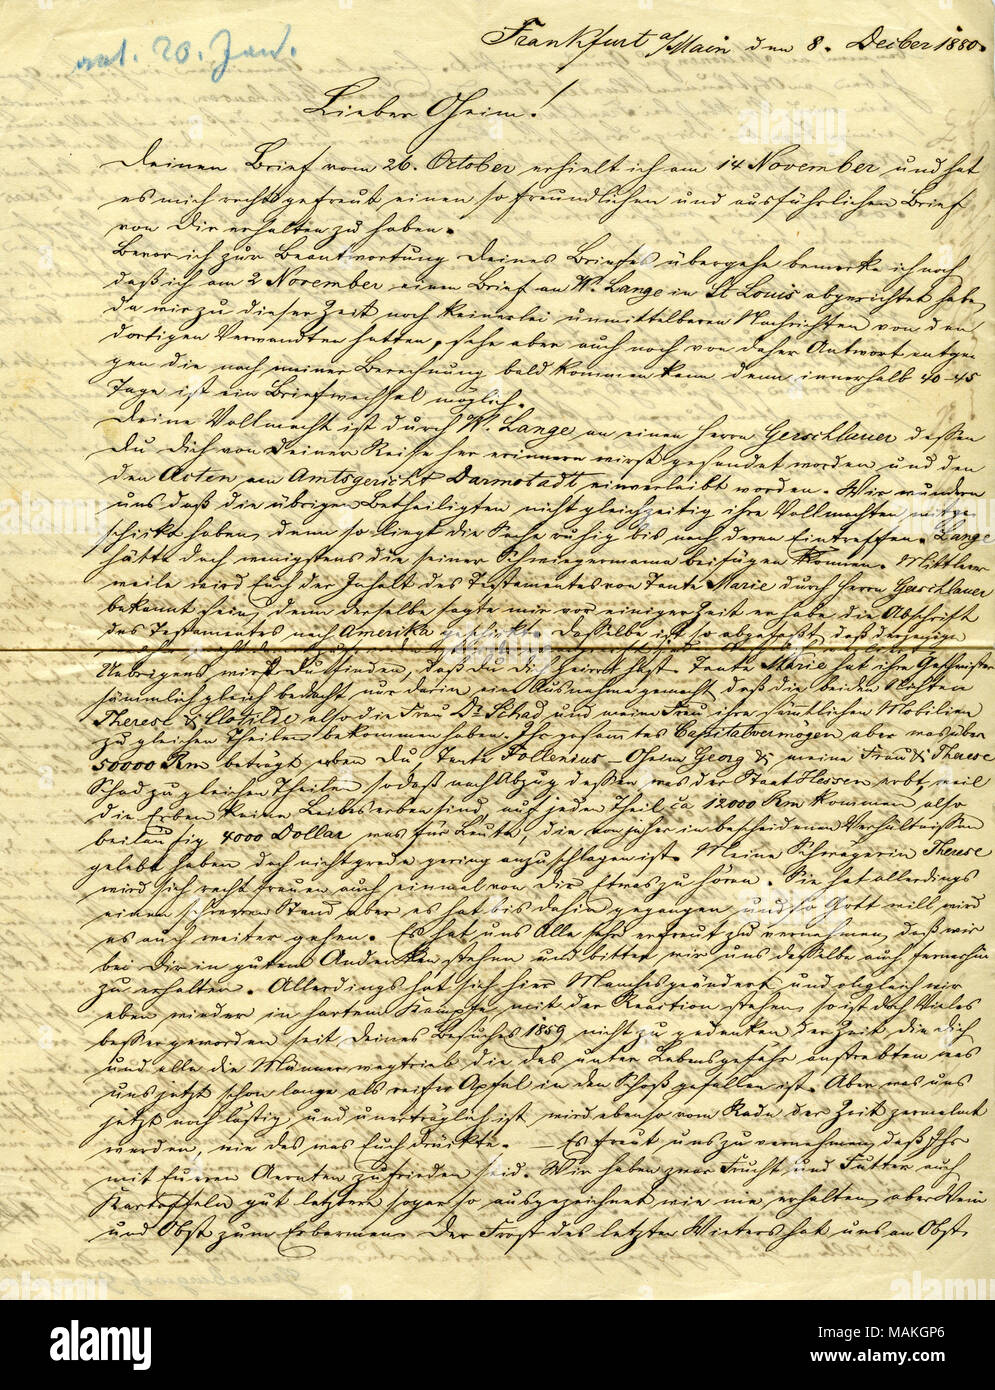 ant. 20. Jan.
Frankfurt a/Main den 8. Decber 1880.
Lieber Oheim!
Deinen Brief vom 26. October erhielt ich am 14 November und hat
es mich recht gefreut einen so freundlichen und ausführlichen Brief
von Dir erhalten zu haben.
Bevor ich zur Beantwortung Deines Briefes übergehe bemerke ich noch
daß ich am 2 November einen Brief an Wm. Lange in St Louis abgerichtet habe,
da wir zu dieser Zeit noch keinerlei unmittelbaren Nachrichten von den
dortigen Verwandten hatten, sehe aber auch noch von daher Antwort entge-
gen die nach meiner Berechnung bald kommen kann denn innerhalb 40-45
Tage ist ein Briefwechsel möglich.
Deine Vollmacht ist durch W. Lange an einen Herrn Gerschlauer dessen
Du Dich von Deiner Reise her erinnern wirst gesandt worden und den
den Acten am Amtsgericht Darmstadt einverleibt worden. Wir wundern
uns daß die übrigen Betheiligten nicht gleichzeitig ihre Vollmachten mitge-
schickt haben, denn so liegt die Sache ruhig bis nach deren Eintreffen. Lange
hätte doch wenigstens die seiner Schwiegermama beifügen können. Mittler-
weile wird Euch der Inhalt des Testamentes von Tante Marie durch Herrn Gerschlauer
bekannt sein, denn derselbe sagte mir vor einiger Zeit er habe die Abschrift
des Testamentes nach Amerika geschickt. Dasselbe ist so abgefaßt, daß derjenige
Uebrigens wirst Du finden, daß Du Dich geirrt hast. Tante Marie hat ihre Geschwister
sämmtlich gleich bedacht nur darin eine Ausnahme gemacht, daß die beiden Nichten
Therese & Clotilde also die Frau Dr. Schad und meine Frau ihre sämtlichen Mobilien
zu gleichen Theilen bekommen haben. Ihr gesamtes Capitalvermögen aber was über
50000 Rm beträgt erben Du, Tante Follenius – Oheim Georg & meine Frau & Therese
Schad zu gleichen Theilen, sodaß nach Abzug dessen, was der Staat Hessen erbt, weil
die Erben keine Leibeserben sind, auf jeden Theil ca 12000 Rm kommen also
beiläufig 4000 Dollar was für Leute, die von jeher in bescheidenen Verhältnissen
gelebt haben doch nicht grade gering anzuschlagen ist. Meine Schwägerin Therese
wird sich recht freuen auch einmal von Dir Etwas zu hören. Sie hat allerdings
einen schweren Stand aber es hat bis dahin gegangen und so Gott will wird
es auch weiter gehen. Es hat uns Alle sehr erfreut zu vernehmen, daß wir
bei Dir in gutem Andenken stehen und bitten wir uns dasselbe auch fernerhin
zu erhalten. Allerdings hat sich hier Manches geändert und obgleich wir
eben wieder in hartem Kampfe mit der Reaction stehen, so ist doch Vieles
besser geworden seit Deines Besuches 1859 nicht zu gedenken der Zeit die Dich
und alle die Männer wegtrieb die das unter Lebensgefahr anstrebten was
uns jetzt schon lange als reifer Apfel in den Schoß gefallen ist. Aber was uns
jetzt noch lästig und unerträglich ist, wird ebenso vom Rade der Zeit zermalmt
werden, wie das was Euch drückte. — Es freut uns zu vernehmen, daß Ihr
mit Eueren Aernten zufrieden seid. Wir haben zwar Frucht und Futter auch
Kartoffeln gut letztere sogar so ausgezeichnet wie nie erhalten, aber Wein
und Obst zum Erbarmen. Der Frost des letzten Winters hat uns an Obst,
alamy
Image ID: MAKGP6
www.alamy.com